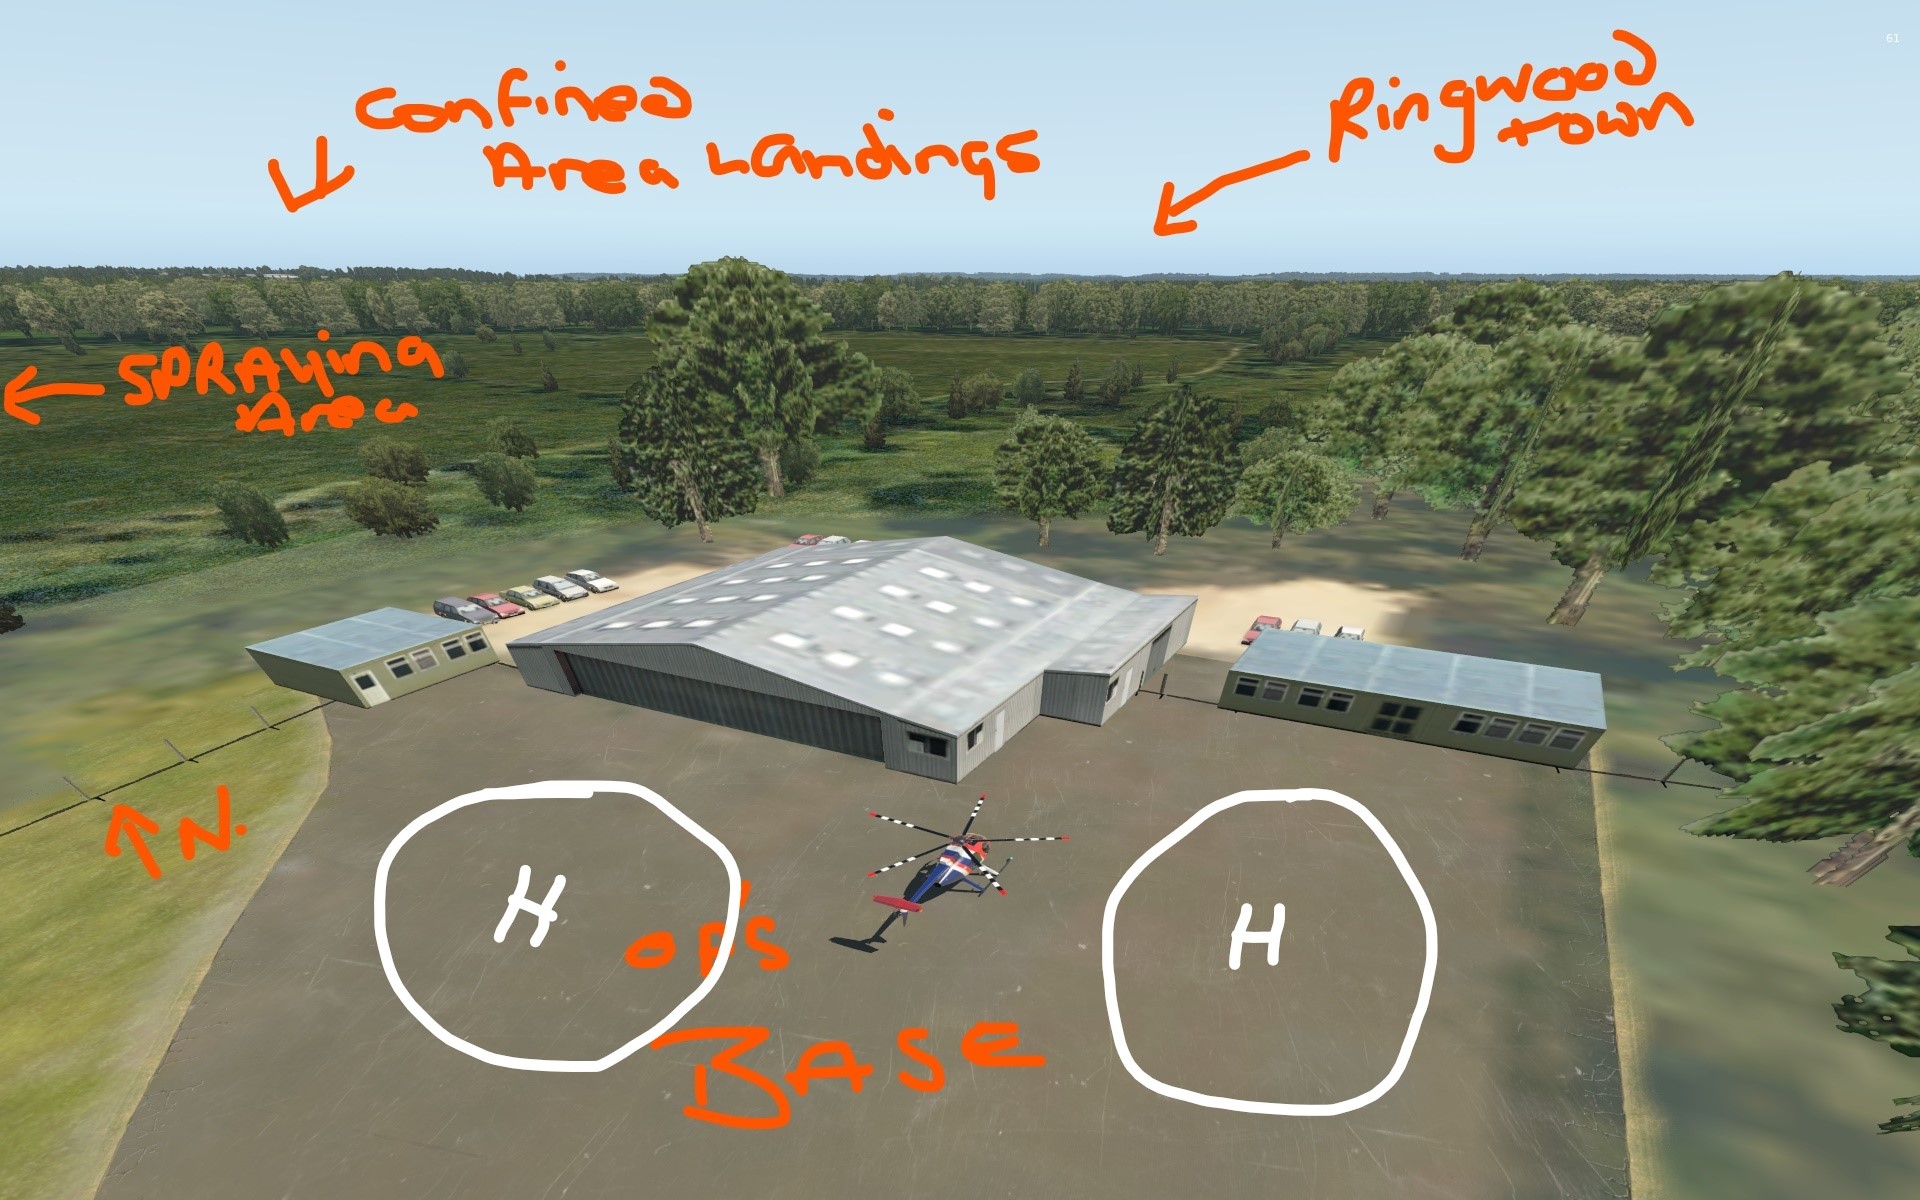 61
Confined
Area Landings
Ringwood
town
SPRAying
Area
N.
H
H
OP'S
BASE